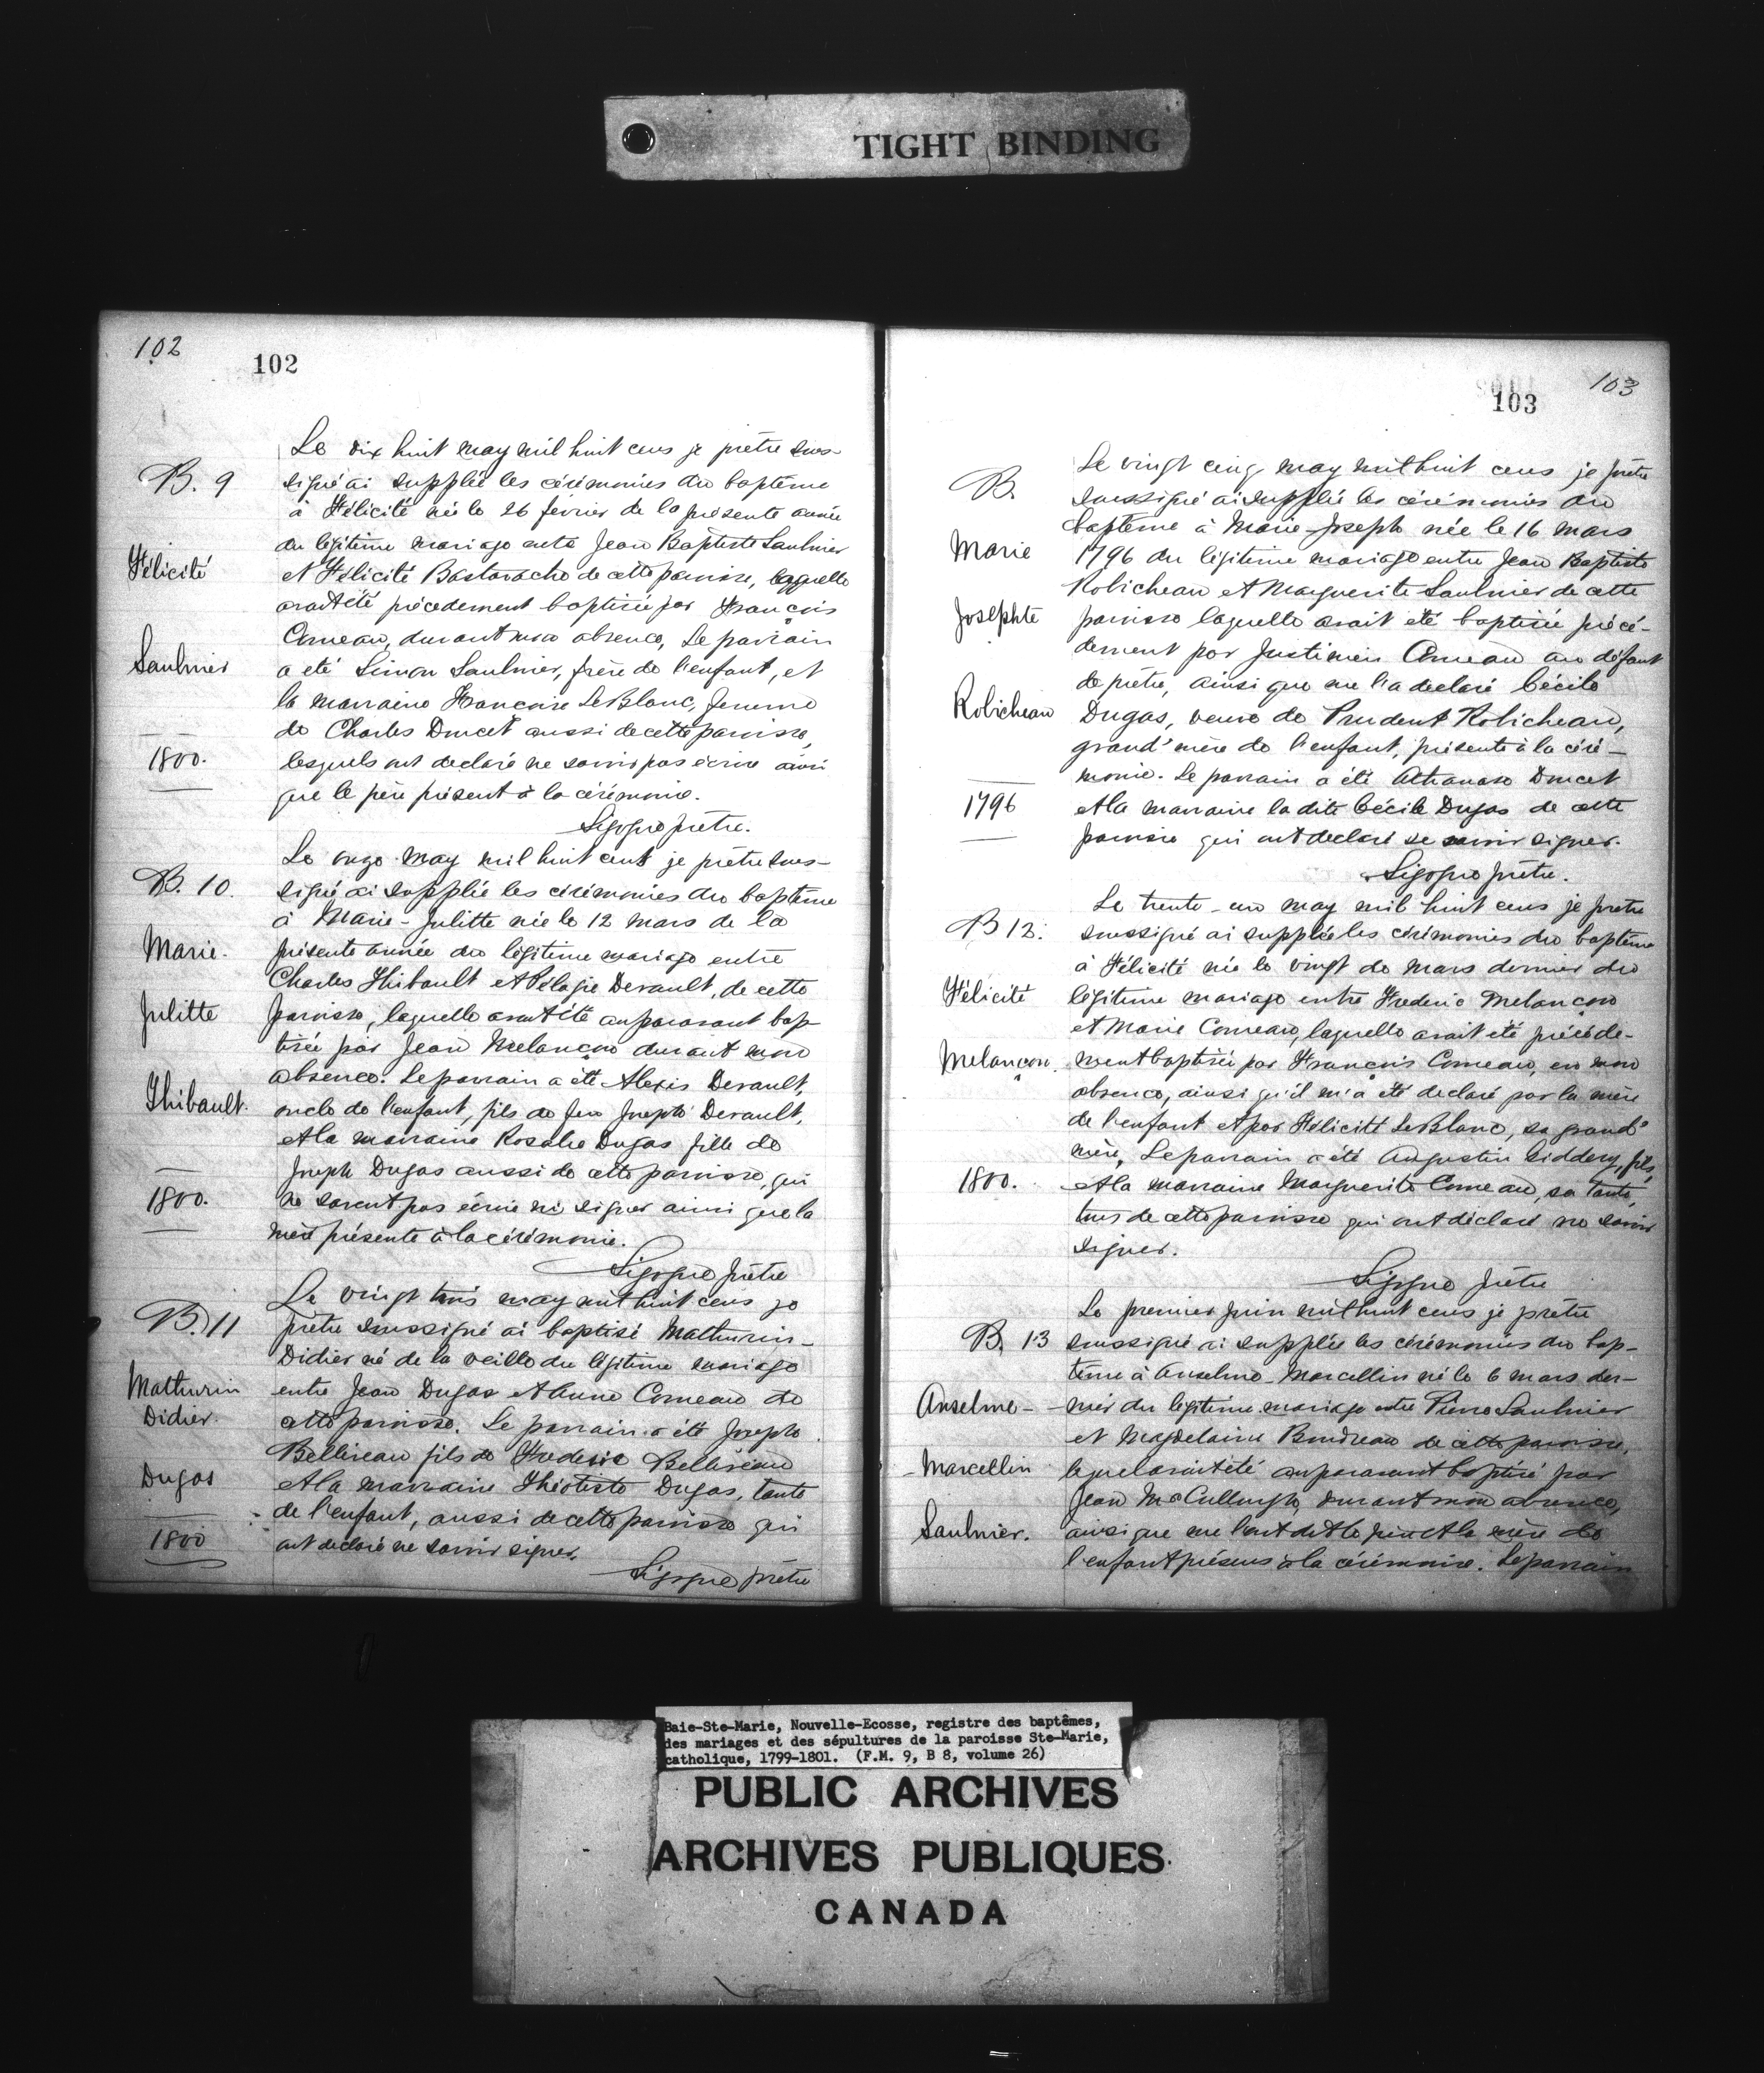 TIGHT BINDING
102
102
Le dix huit may mil huit cens je prêtre sous-
B. 9
signé ai supplée les cérémonies du baptême
à Félicité née le 26 février de la présente année
du légitime mariage entre Jean Baptiste Saulnier
Félicité
et Félicité Bastarache de cette paroisse, laquelle
avait été précedement baptisée par François
Comeau, durant mon absence, Le parrain
Saulnier
a été Simon Saulnier, frère de l'enfant, et
la marraine Françoise LeBlanc, femme
de Charles Doucet aussi de cette paroisse,
1800.
lesquels ont declaré ne savoir pas écrire ainsi
que le père présent à la cérémonie.
Sigogne prêtre.
Le onze may mil huit cent je prêtre sous-
B. 10.
signé ai supplée les cérémonies du baptême
à Marie-Julitte née le 12 mars de la
Marie.
présente année du légitime mariage entre
Charles Thibault et Pélagie Derault, de cette
Julitte
paroisse, laquelle avait été auparavant bap-
tisée par Jean Melançon durant mon
absence. Le parrain a été Alexis Derault,
Thibault.
oncle de l'enfant, fils de feu Joseph Derault,
et la marraine Rosalie Dugas fille de
Joseph Dugas aussi de cette paroisse, qui
1800.
ne savent pas écrire ni signer ainsi que la
mère présente à la cérémonie.
Sigogne prêtre
Le vingt trois may mil huit cens je
B. 11
prêtre soussigné ai baptisé Mathurin-
Didier né de la veille du légitime mariage
Mathurin
entre Jean Dugas et Anne Comeau de
Didier.
cette paroisse. Le parrain a été Joseph
Belliveau fils de Frederic Belliveau
Dugas
et la marraine Théotiste Dugas, tante
de l'enfant, aussi de cette paroisse qui
1800
ont declaré ne savoir signer.
Sigogne prêtre
103
103
Le vingt cinq may mil huit cens je prêtre
B.
soussigné ai supplée les cérémonies du
baptême à Marie-Joseph née le 16 mars
Marie
1796 du légitime mariage entre Jean Baptiste
Robicheau et Marguerite Saulnier de cette
Josephte
paroisse laquelle avait été baptisée précé-
dement par Justinien Comeau au défaut
de prêtre, ainsi que me l'a declaré Cécile
Robicheau
Dugas, veuve de Prudent Robicheau,
grand'mère de l'enfant, présente à la céré-
monie. Le parrain a été Athanase Doucet
1796
et la marraine la dite Cécile Dugas de cette
paroisse qui ont declaré ne savoir signer.
Sigogne prêtre.
Le trente-un may mil huit cens je prêtre
B 12.
soussigné ai supplée les cérémonies du baptême
à Félicité née le vingt de mars dernier du
Félicité
légitime mariage entre Frederic Melançon
et Marie Comeau, laquelle avait été précéde-
Melançon.
ment baptisée par François Comeau, en mon
absence, ainsi qu'il m'a été declaré par la mère
de l'enfant et par Félicité LeBlanc, sa grand'
mère, Le parrain a été Augustin fils,
1800.
et la marraine Marguerite Comeau, sa tante,
tous de cette paroisse qui ont déclaré ne savoir
signer.
Sigogne prêtre
Le premier juin mil huit cens je prêtre
B. 13
soussigné ai supplée les cérémonies du bap-
tême à Anselme-Marcellin né le 6 mars der-
Anselme-
nier du légitime mariage entre Pierre Saulnier
et Magdelaine Boudreau de cette paroisse,
Marcellin
lequel avait été auparavant baptisé par
Jean McCullough, durant mon absence,
Saulnier.
ainsi que me l'ont dit le père et la mère de
l'enfant présens à la cérémonie. Le parrain
Baie-Ste-Marie, Nouvelle-Ecosse, registre des baptêmes,
des mariages et des sépultures de la paroisse Ste-Marie,
catholique, 1799-1801. (F.M. 9, B 8, volume 26)
PUBLIC ARCHIVES
ARCHIVES PUBLIQUES
CANADA